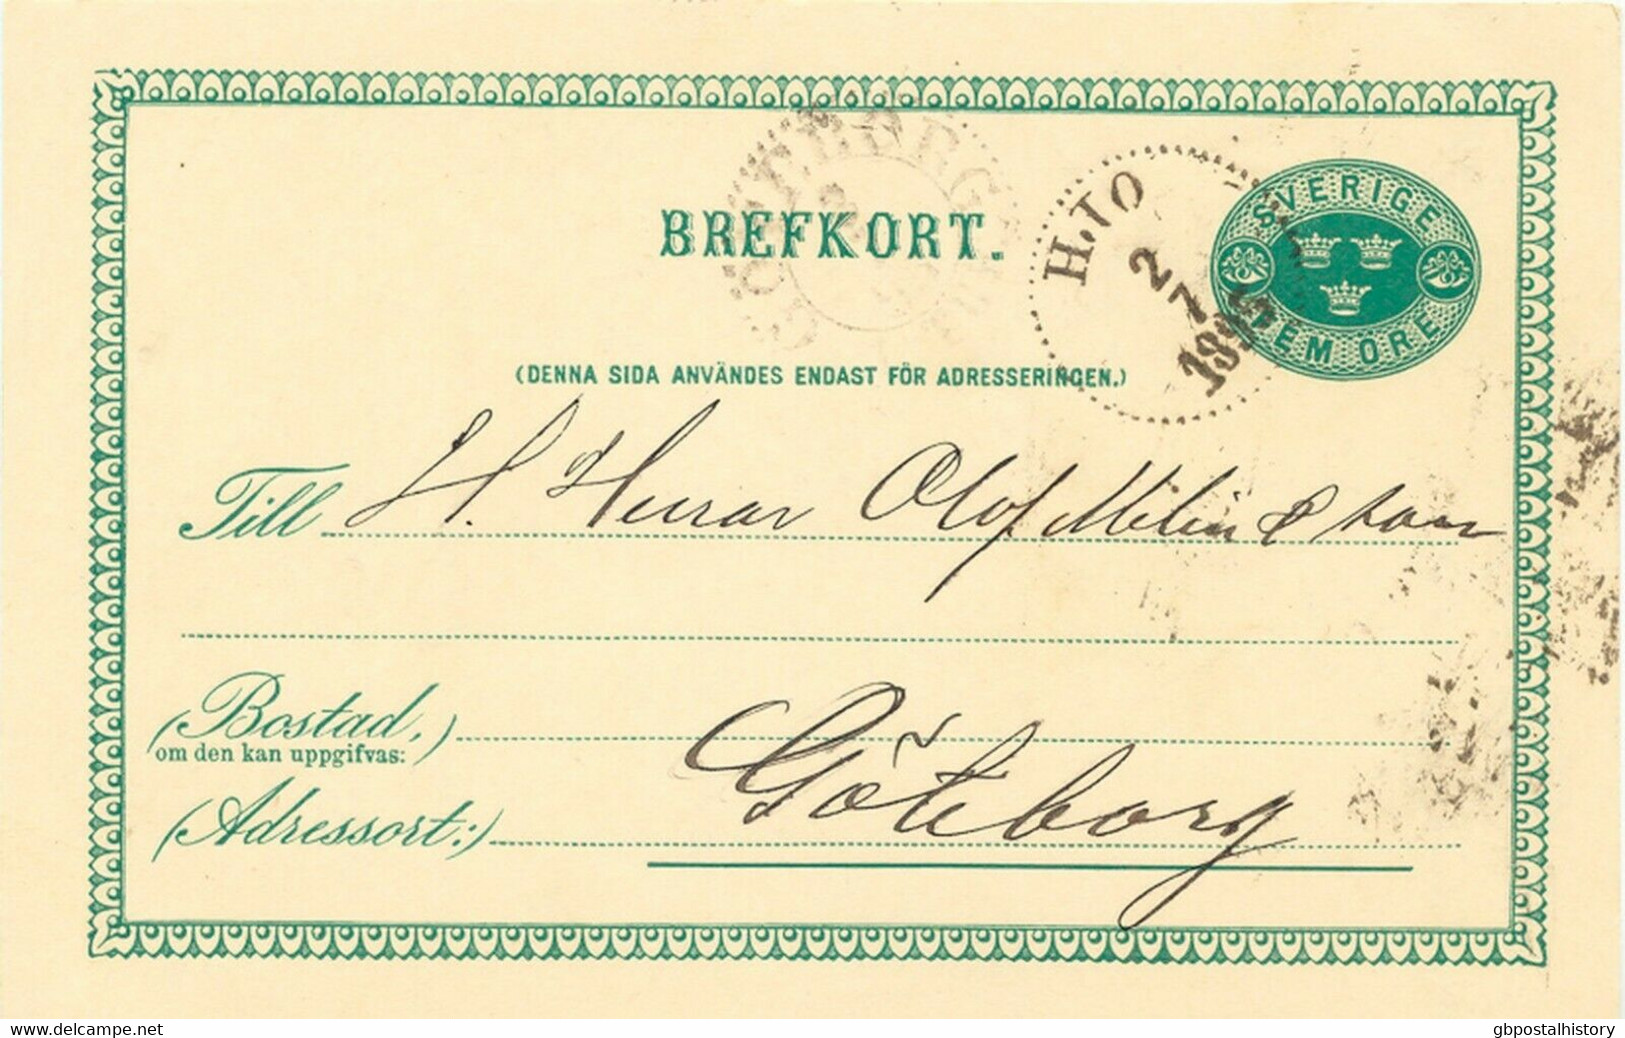 SVERIGE
FEM ÖRE
GÖTEBORG
HJO
2
7
1895
BREFKORT.
(DENNA SIDA ANVÄNDES ENDAST FÖR ADRESSERINGEN.)
Till H. Herrar Olof Melin & Son
(Bostad,)
om den kan uppgifvas:
Göteborg
(Adressort:)
www.delcampe.net
gbpostalhistory